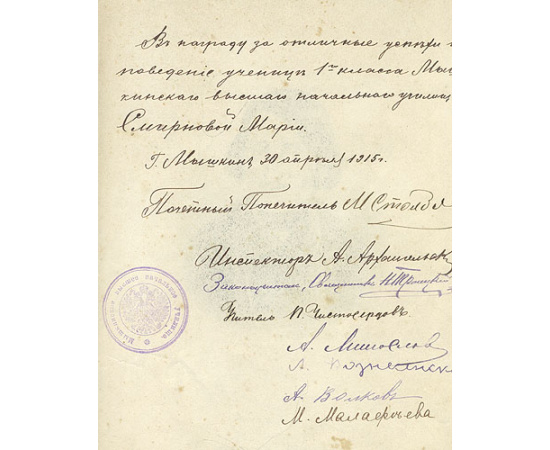 Въ награду за отличные успѣхи и
поведеніе ученицѣ 1го класса Мыш
кинскаго высшаго начальнаго училищ
Смирновой Маріи.
Г. Мышкинъ 30 апрѣля 1915 г.
Почетный Попечитель М Столбо
Инспекторъ А. Архангельск
Законоучитель, Священникъ Н Троицкій
Учитель П. Чистосердовъ
А.
А. Вознесенск
А. Волковъ
М. Малафѣева
МЫШКИНСКОЕ ВЫСШЕЕ НАЧАЛЬНОЕ УЧИЛИЩЕ